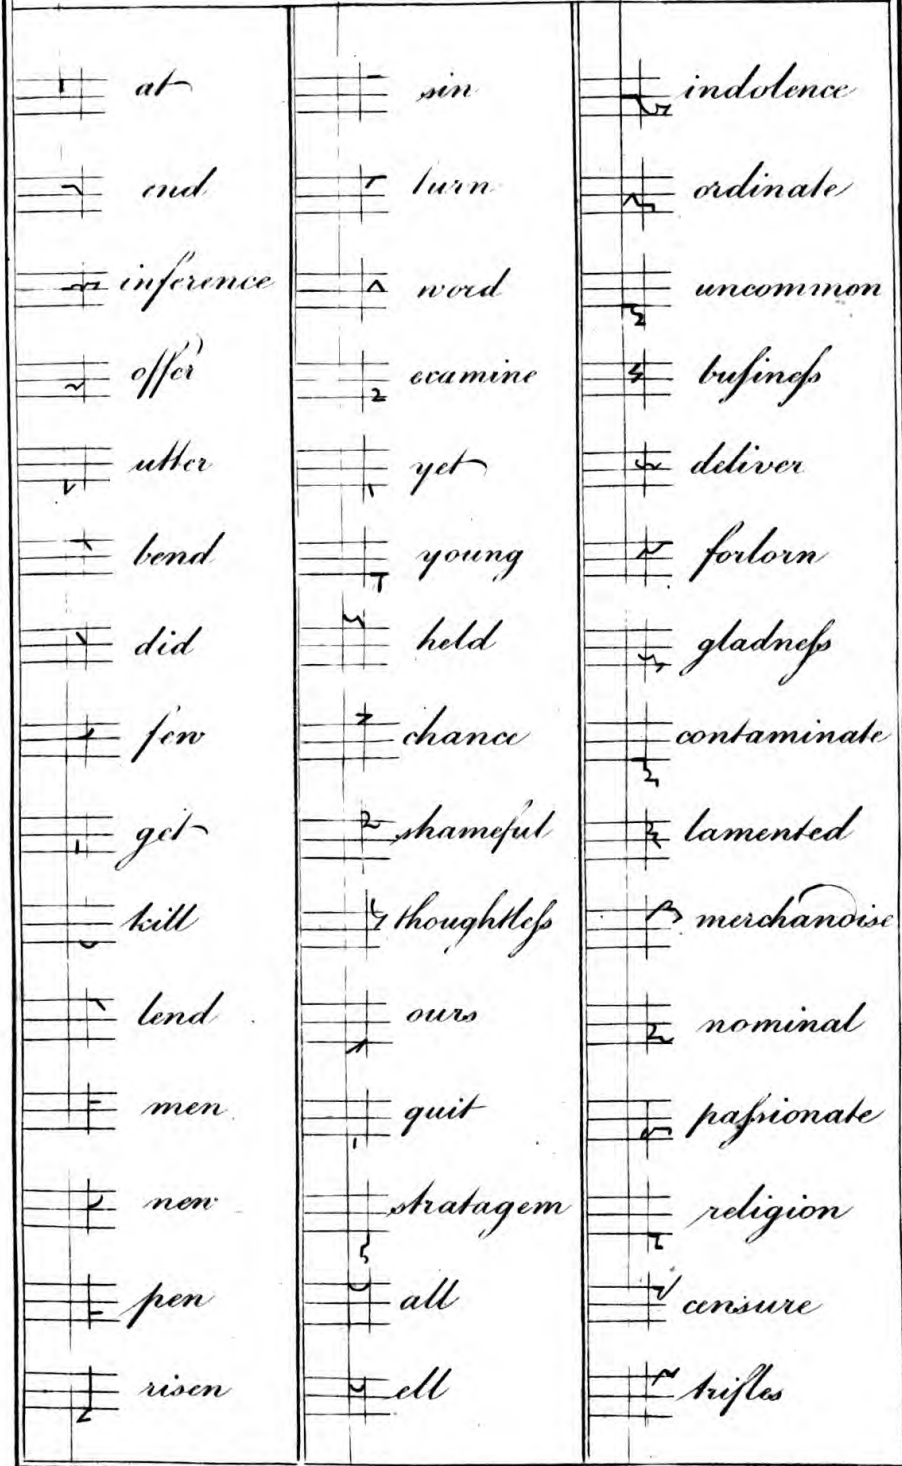 at
end
inference
offer
utter
bend
did
few
get
kill
lend
men
new
pen
risen
sin
turn
word
examine
yet
young
held
chance
shameful
thoughtleſs
ours
quit
stratagem
all
ell
indolence
ordinate
uncommon
buſineſs
deliver
forlorn
gladneſs
contaminate
lamented
merchandise
nominal
paſsionate
religion
censure
trifles